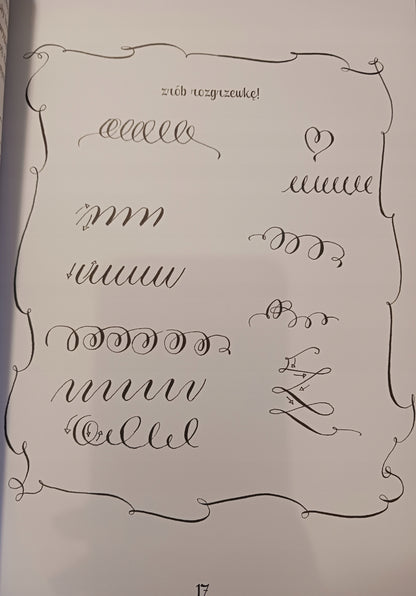 zrób rozgrzewkę!
17